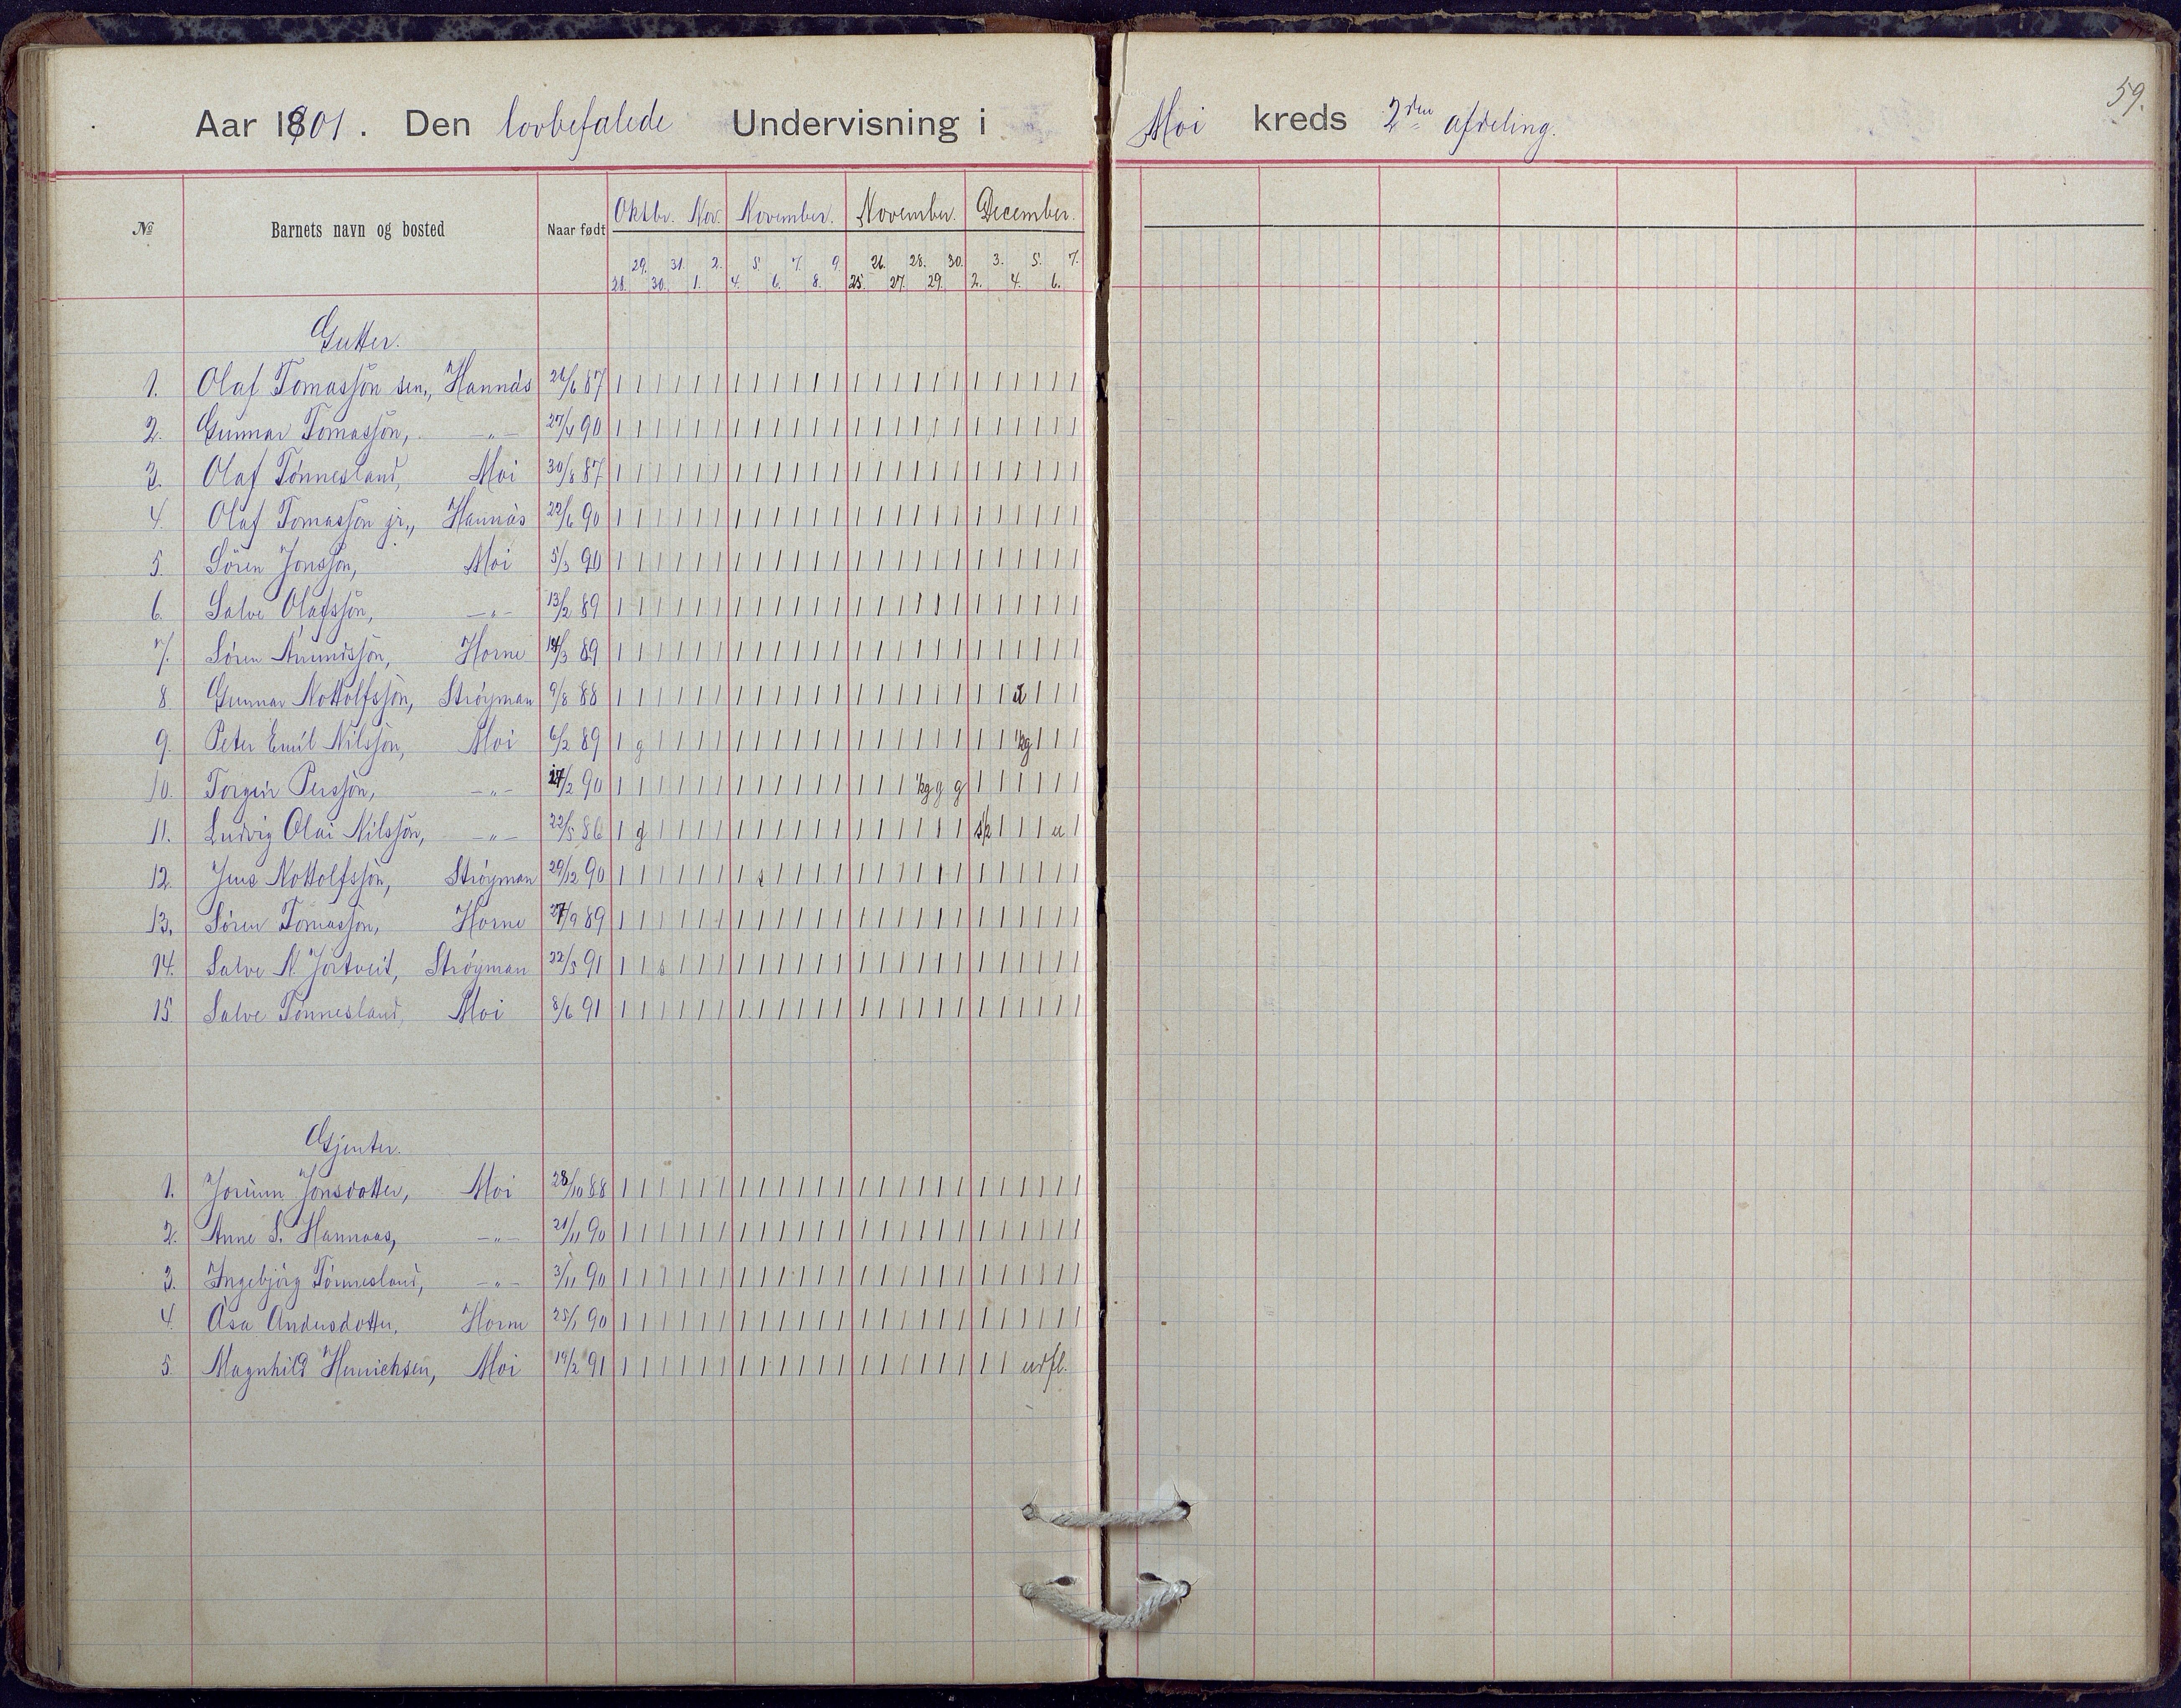 59.
Aar 1901. Den lovbefalede Undervisning i Moi kreds 2den afdeling.
№ Barnets navn og bosted Naar født Oktbr. Nov. November. November. December.
29. 31. 2. 5. 7. 9. 26. 28. 30. 3. 5. 7.
28. 30. 1. 4. 6. 8. 25. 27. 29. 2. 4. 6.
Gutter.
1. Olaf Tomassön sen., Hannås 26/6 87 | | | | | | | | | | | | | | | | | | | | | | | |
2. Gunnar Tomassön, -"- 27/4 90 | | | | | | | | | | | | | | | | | | | | | | | |
3. Olaf Tönnesland, Moi 30/8 87 | | | | | | | | | | | | | | | | | | | | | | | |
4. Olaf Tomassön jr., Hannås 22/6 90 | | | | | | | | | | | | | | | | | | | | | | | |
5. Sören Jonssön, Moi 5/3 90 | | | | | | | | | | | | | | | | | | | | | | | |
6. Salve Olafssön, -"- 13/2 89 | | | | | | | | | | | | | | | | | | | | | | | |
7. Sören Anundssön, Horne 14/3 89 | | | | | | | | | | | | | | | | | | | | | | | |
8. Gunnar Nottolfssön, Ströyman 9/8 88 | | | | | | | | | | | | | | | | | | | | | | |
9. Peter Emil Nilssön, Moi 6/2 89 | g | | | | | | | | | | | | | | | | | | kg | | |
10. Torgeir Perssön, -"- 27/2 90 | | | | | | | | | | | | | | | kg g g | | | | | |
11. Ludvig Olai Nilssön, -"- 22/5 86 | g | | | | | | | | | | | | | | | | | | | u |
12. Jens Nottolfssön, Ströyman 29/12 90 | | | | | | | s | | | | | | | | | | | | | | | |
13. Sören Tomassön, Horne 27/9 89 | | | | | | | | | | | | | | | | | | | | | | | |
14. Salve N. Jortveit, Ströyman 22/5 91 | | s | | | | | | | | | | | | | | | | | | | | |
15. Salve Tönnesland, Moi 8/6 91 | | | | | | | | | | | | | | | | | | | | | | | |
Gjenter.
1. Jorunn Jonsdotter, Moi 28/10 88 | | | | | | | | | | | | | | | | | | | | | | | |
2. Anne S. Hannaas, -"- 21/11 90 | | | | | | | | | | | | | | | | | | | | | | | |
3. Ingebjörg Tönnesland, -"- 3/11 90 | | | | | | | | | | | | | | | | | | | | | | | |
4. Åsa Andersdotter, Horne 25/1 90 | | | | | | | | | | | | | | | | | | | | | | | |
5. Magnhild Henrichsen, Moi 19/2 91 | | | | | | | | | | | | | | | | | | | | udfl.